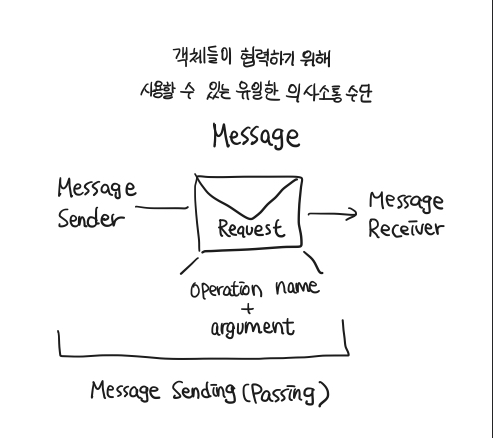 객체들이 협력하기 위해
사용할 수 있는 유일한 의사소통 수단
Message
Message
Sender
Request
Message
Receiver
Operation name
+
argument
Message Sending (Passing)